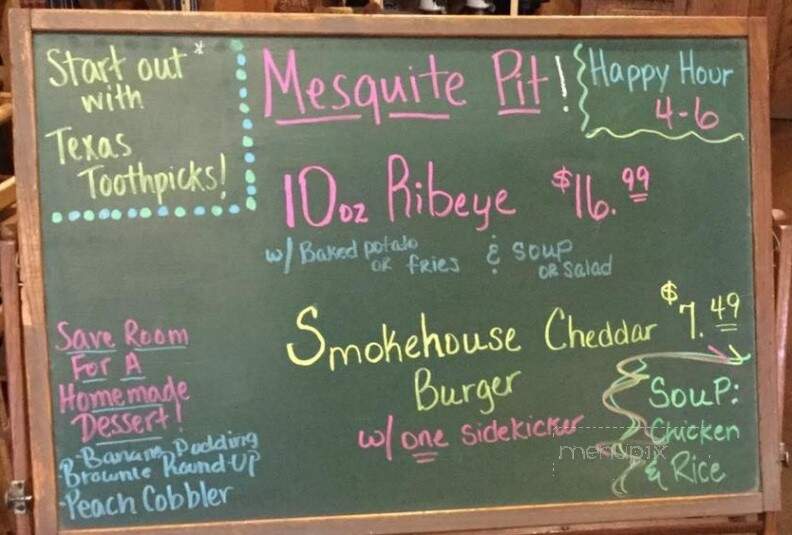 Start out*
with
Texas
Toothpicks!
Mesquite Pit!
Happy Hour
4-6
10oz Ribeye $16.99
w/ Baked potato
OR fries
& Soup
OR Salad
Smokehouse Cheddar
Burger
$7.49
w/ one sidekicker
Save Room
For A
Homemade
Dessert!
-Banana Pudding
-Brownie Round-Up
-Peach Cobbler
Soup:
Chicken
& Rice
menupix